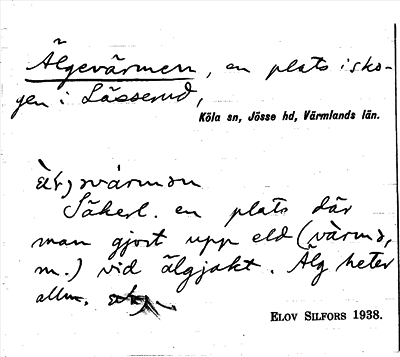 Älgevärmen, en plats i sko-
gen i Lässerud,
Köla sn, Jösse hd, Värmlands län.
Säkerl. en plats där
man gjort upp eld (värme,
m.) vid älgjakt. Älg heter
allm.
ELOV SILFORS 1938.